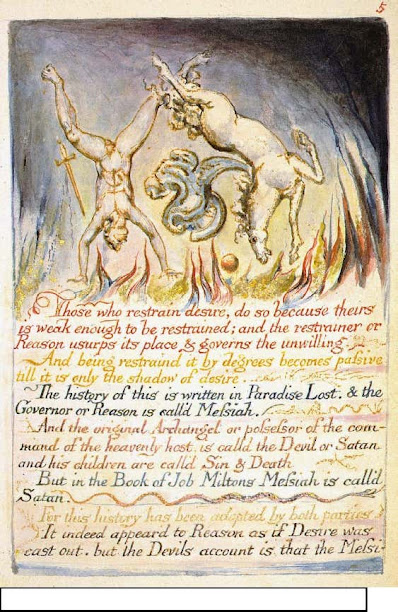 5
Those who restrain desire, do so because theirs
is weak enough to be restrained; and the restrainer or
Reason usurps its place & governs the unwilling.
And being restraind it by degrees becomes passive
till it is only the shadow of desire.
The history of this is written in Paradise Lost. & the
Governor or Reason is call'd Messiah.
And the original Archangel or possessor of the com-
mand of the heavenly host, is calld the Devil or Satan
and his children are call'd Sin & Death
But in the Book of Job Miltons Messiah is call'd
Satan.
For this history has been adopted by both parties
It indeed appear'd to Reason as if Desire was
cast out, but the Devils account is that the Messi-